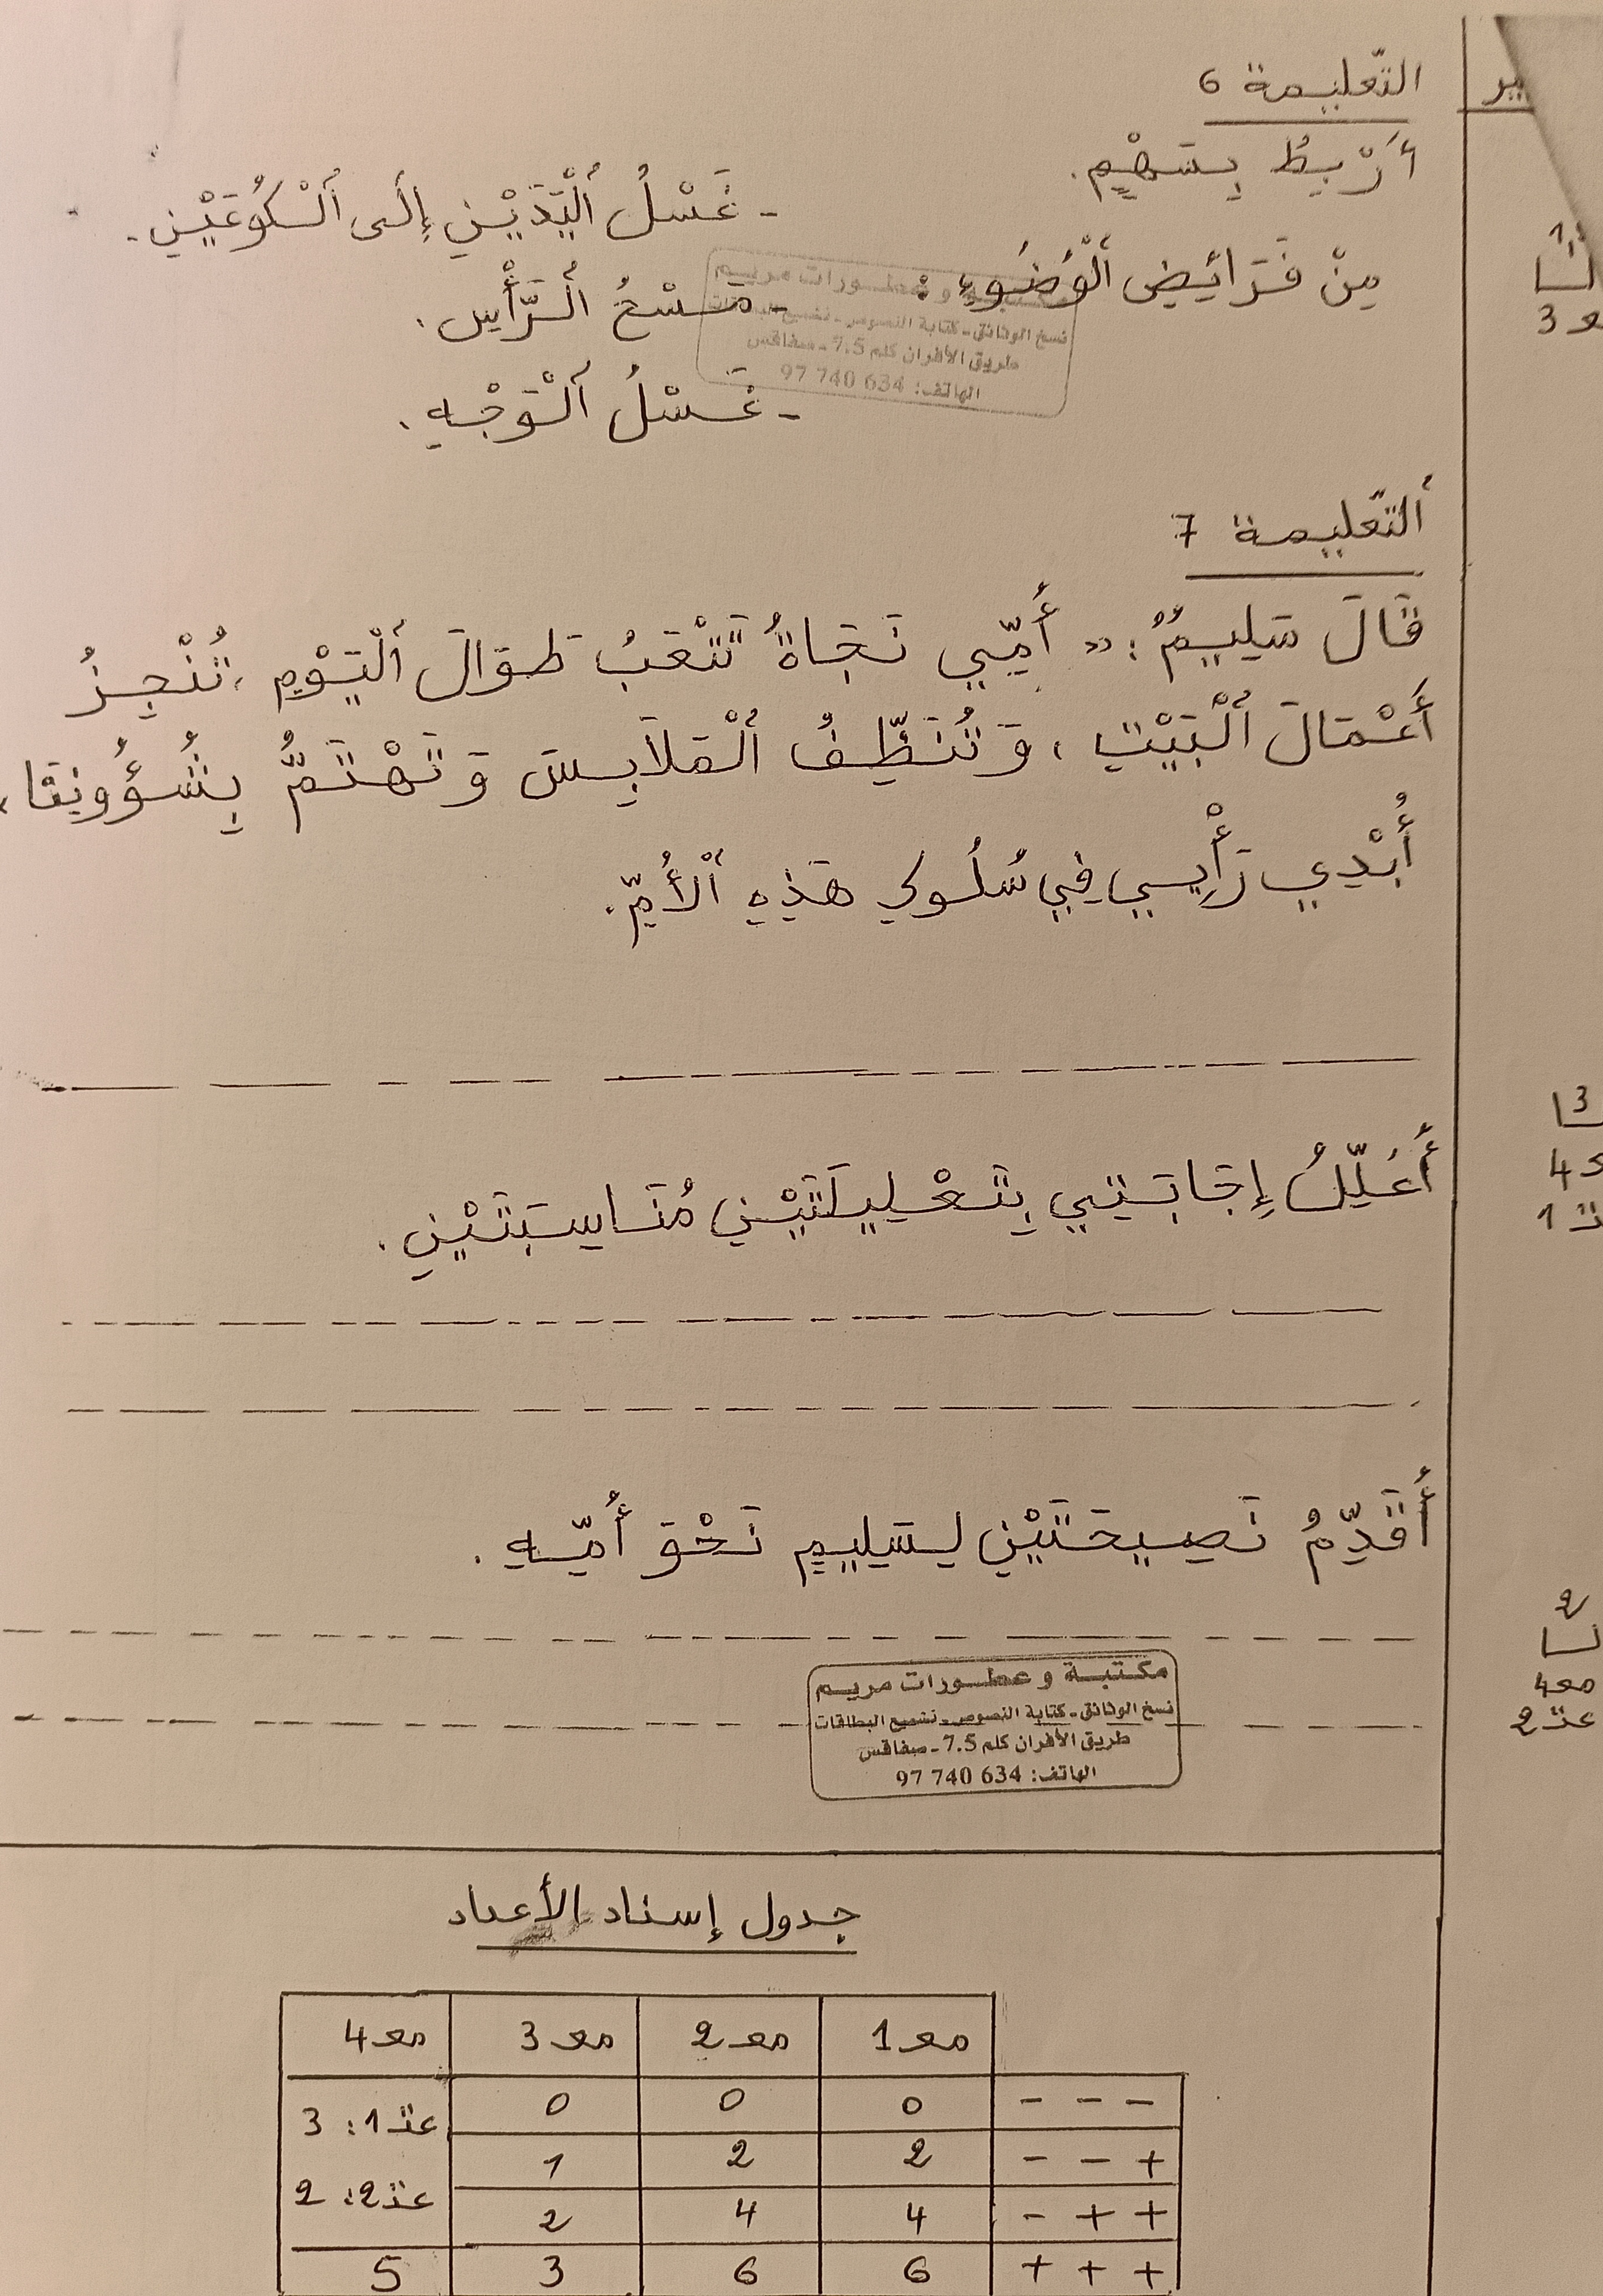 التّعليمة 6
أَرْبِطُ بِسَهْمٍ.
- غَسْلُ اَلْيَدَيْنِ إِلَى اَلْكُوعَيْنِ.
مِنْ فَرَائِضِ اَلْوُضُوءِ :
- مَسْحُ اُلرَّأْسِ.
- غَسْلُ اَلْوَجْهِ.
مكتبة و عطورات مريم
نسخ الوثائق - كتابة النصوص - نشميع البطاقات
طريق الأفران كلم 7.5 - صفاقس
الهاتف: 634 740 97
اَلتّعليمة 7
قَالَ سَلِيمٌ: « أُمِّي نَجَاةُ تَتْعَبُ طَوَالَ اَلْيَوْمِ، تُنْجِزُ
أَعْمَالَ اَلْبَيْتِ، وَتُنَظِّفُ اَلْمَلَابِسَ وَتَهْتَمُّ بِشُؤُونِنَا،
أُبْدِي رَأْيِي فِي سُلُوكِ هَذِهِ اَلْأُمِّ.
أُعَلِّلُ إِجَابَتِي بِتَعْلِيلَتَيْنِ مُنَاسِبَتَيْنِ.
أُقَدِّمُ نَصِيحَتَيْنِ لِسَلِيمٍ نَحْوَ أُمِّهِ.
مكتبة و عطورات مريم
نسخ الوثائق - كتابة النصوص - نشميع البطاقات
طريق الأفران كلم 7.5 - صفاقس
الهاتف: 634 740 97
جدول إسناد الأعداد
مع1 مع2 مع3 مع4
- - - 0 0 0 عت1: 3
+ - - 2 2 1
+ + - 4 4 2 عت2: 2
+ + + 6 6 3 5
مع 3
3
4
1
2
مع4
عت2